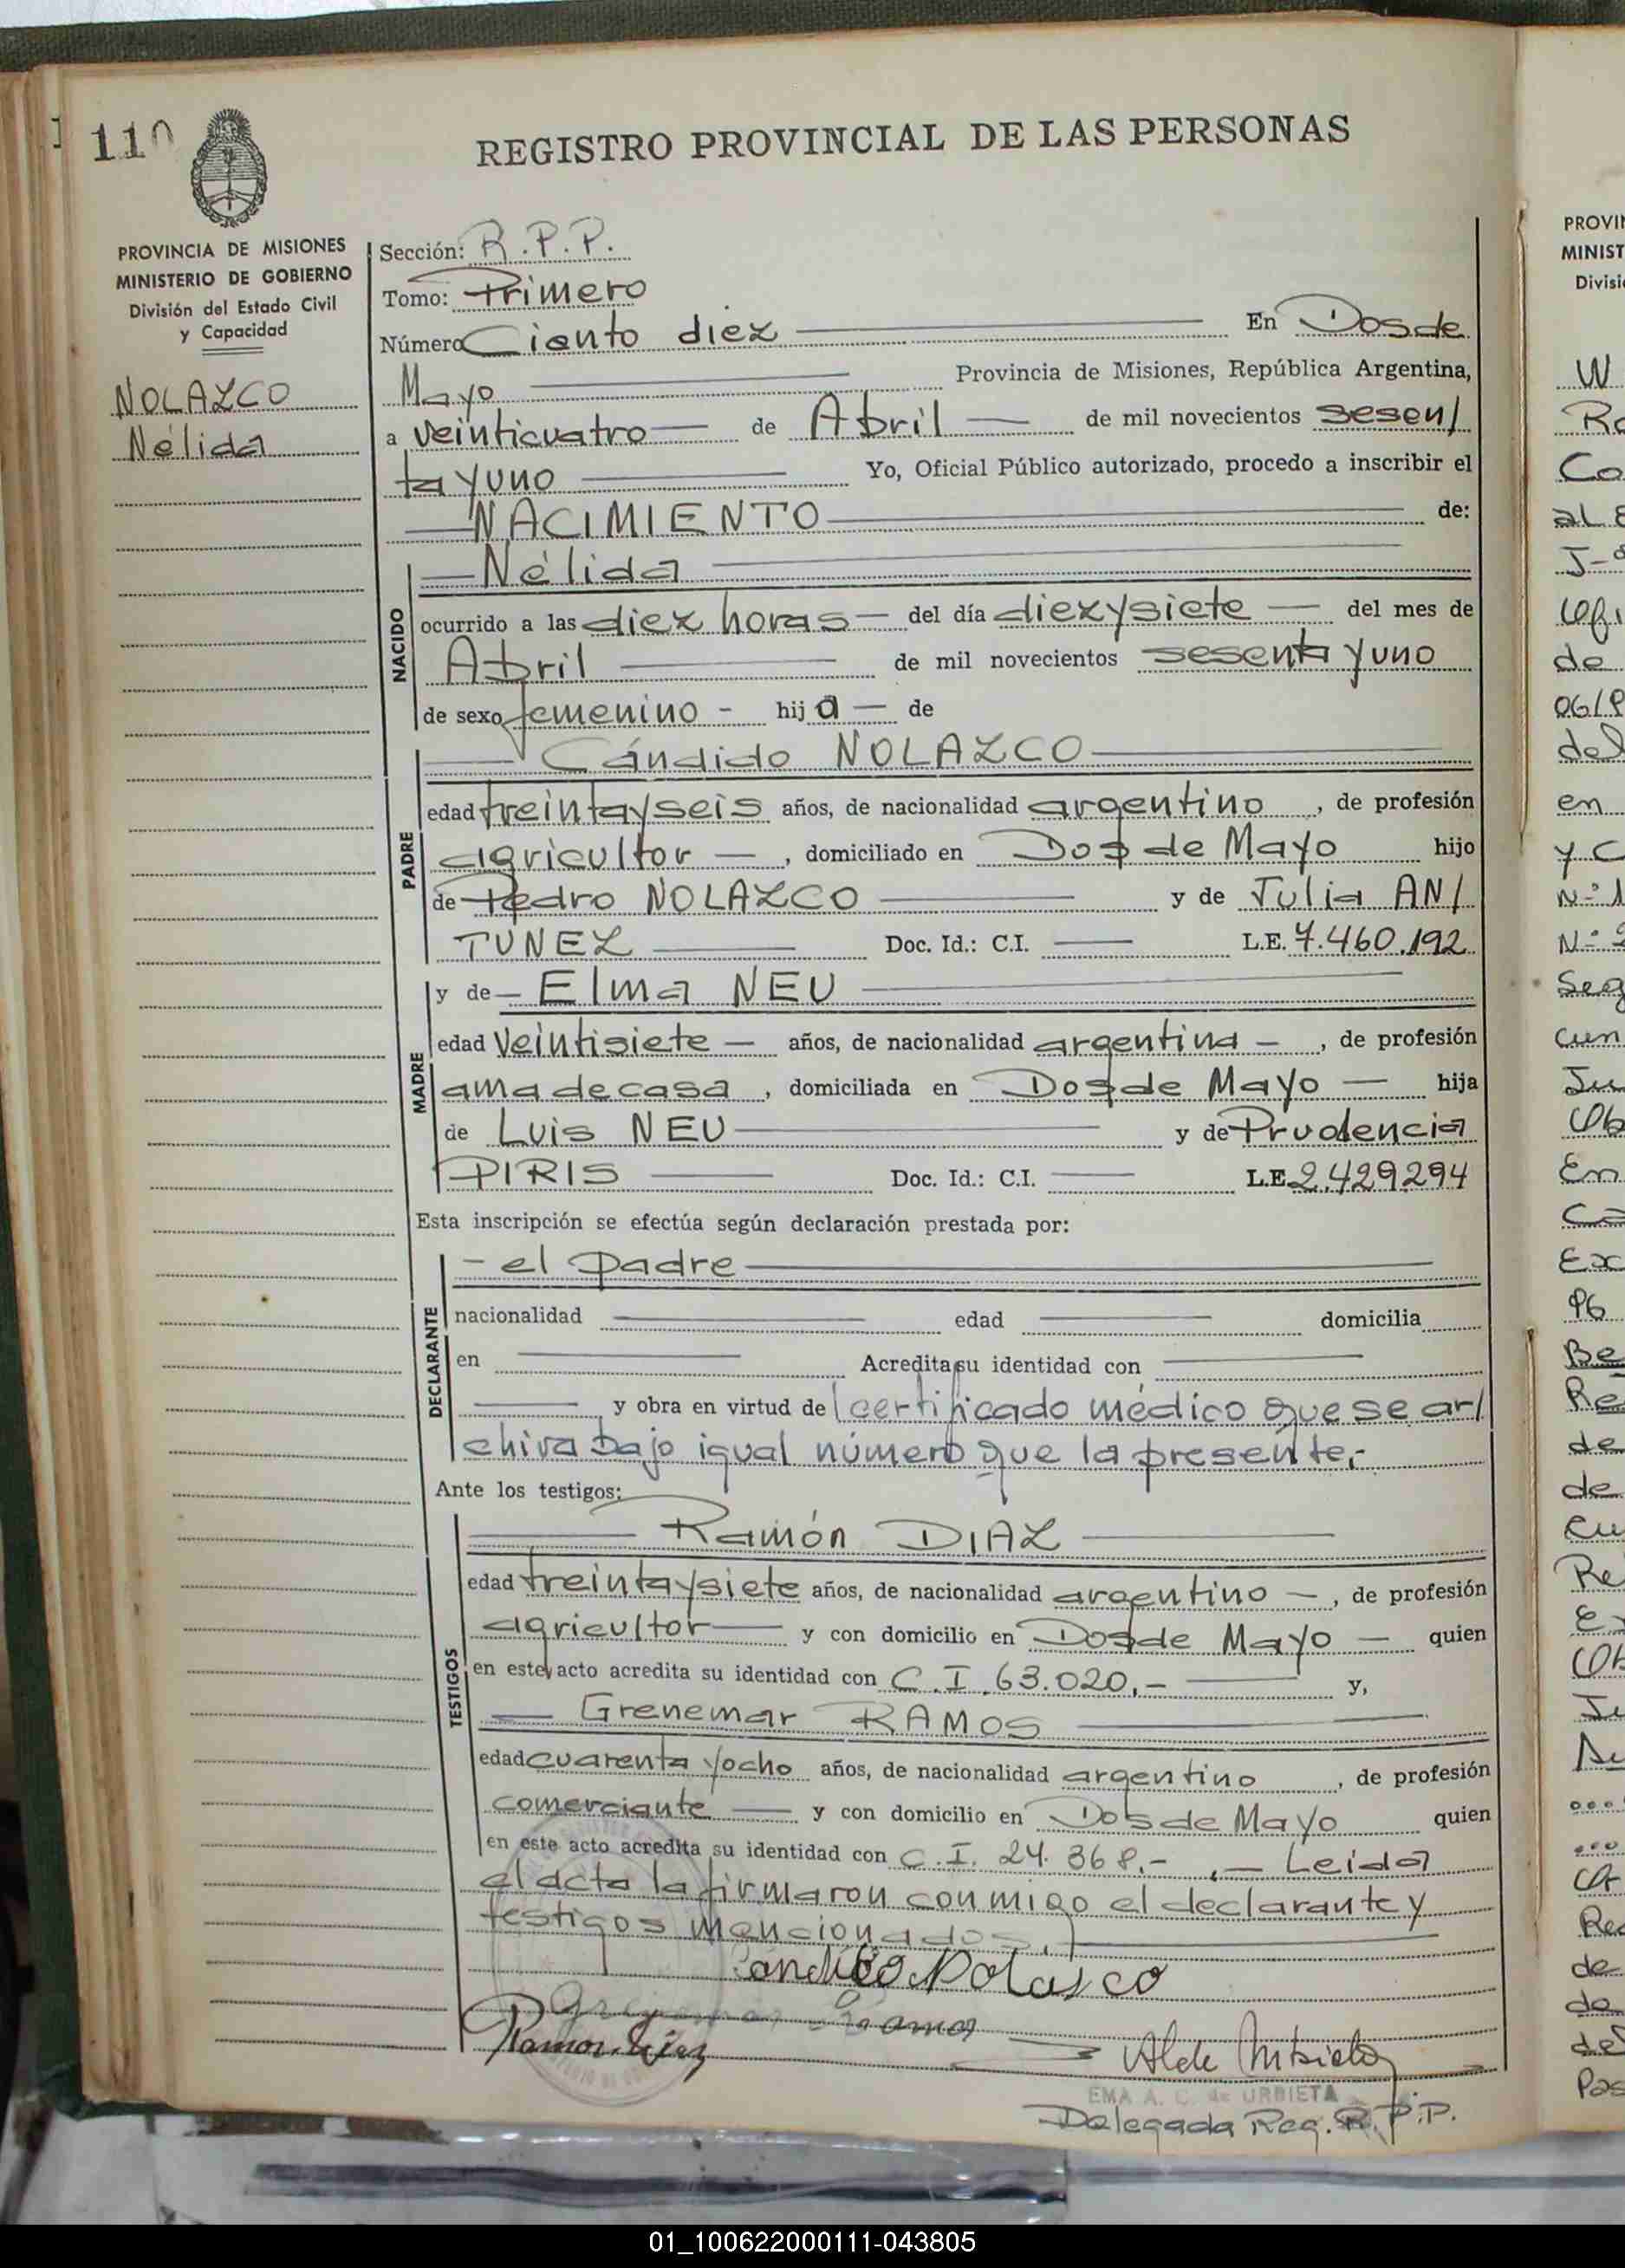 110
REGISTRO PROVINCIAL DE LAS PERSONAS
PROVINCIA DE MISIONES
MINISTERIO DE GOBIERNO
División del Estado Civil
y Capacidad
NOLAZCO
Nélida
Sección: R.P.P.
Tomo: Primero
Número Ciento diez En Dos de
Mayo Provincia de Misiones, República Argentina,
a veinticuatro de Abril de mil novecientos sesen/
ta y uno Yo, Oficial Público autorizado, procedo a inscribir el
NACIMIENTO de:
Nélida
NACIDO
ocurrido a las diez horas del día diez y siete del mes de
Abril de mil novecientos sesenta y uno
de sexo femenino - hij a de
Cándido NOLAZCO
PADRE
edad treinta y seis años, de nacionalidad argentino, de profesión
agricultor, domiciliado en Dos de Mayo hijo
de Pedro NOLAZCO y de Julia AN/
TUNEZ Doc. Id.: C.I. L.E. 7.460.192
y de Elma NEU
MADRE
edad veintisiete años, de nacionalidad argentina, de profesión
ama de casa, domiciliada en Dos de Mayo hija
de Luis NEU y de Prudencia
PIRIS Doc. Id.: C.I. L.E. 2.429.294
Esta inscripción se efectúa según declaración prestada por:
- el padre
DECLARANTE
nacionalidad edad domicilia
en Acredita su identidad con
y obra en virtud de certificado médico que se ar/
chiva bajo igual número que la presente,-
Ante los testigos:
Ramón DIAZ
TESTIGOS
edad treinta y siete años, de nacionalidad argentino, de profesión
agricultor y con domicilio en Dos de Mayo quien
en este acto acredita su identidad con C.I. 63.020,- y,
Grenemar RAMOS
edad cuarenta y ocho años, de nacionalidad argentino, de profesión
comerciante y con domicilio en Dos de Mayo quien
en este acto acredita su identidad con C.I. 24.368,- ,- Leída
el acta la firmaron conmigo el declarante y
testigos mencionados.
Cándido Nolasco
Ramos
Ramon Diaz
EMA A. C. de URBIETA
Delegada Reg. R.P.P.
PROVIN
MINIST
Divisi
W
Co
al
de
06/
del
en
y C
Seg
cun
Ju
Ob
En
Ca
Ex
96
Be
Re
de
de
cu
Re
de
de
del
Pas
01_100622000111-043805